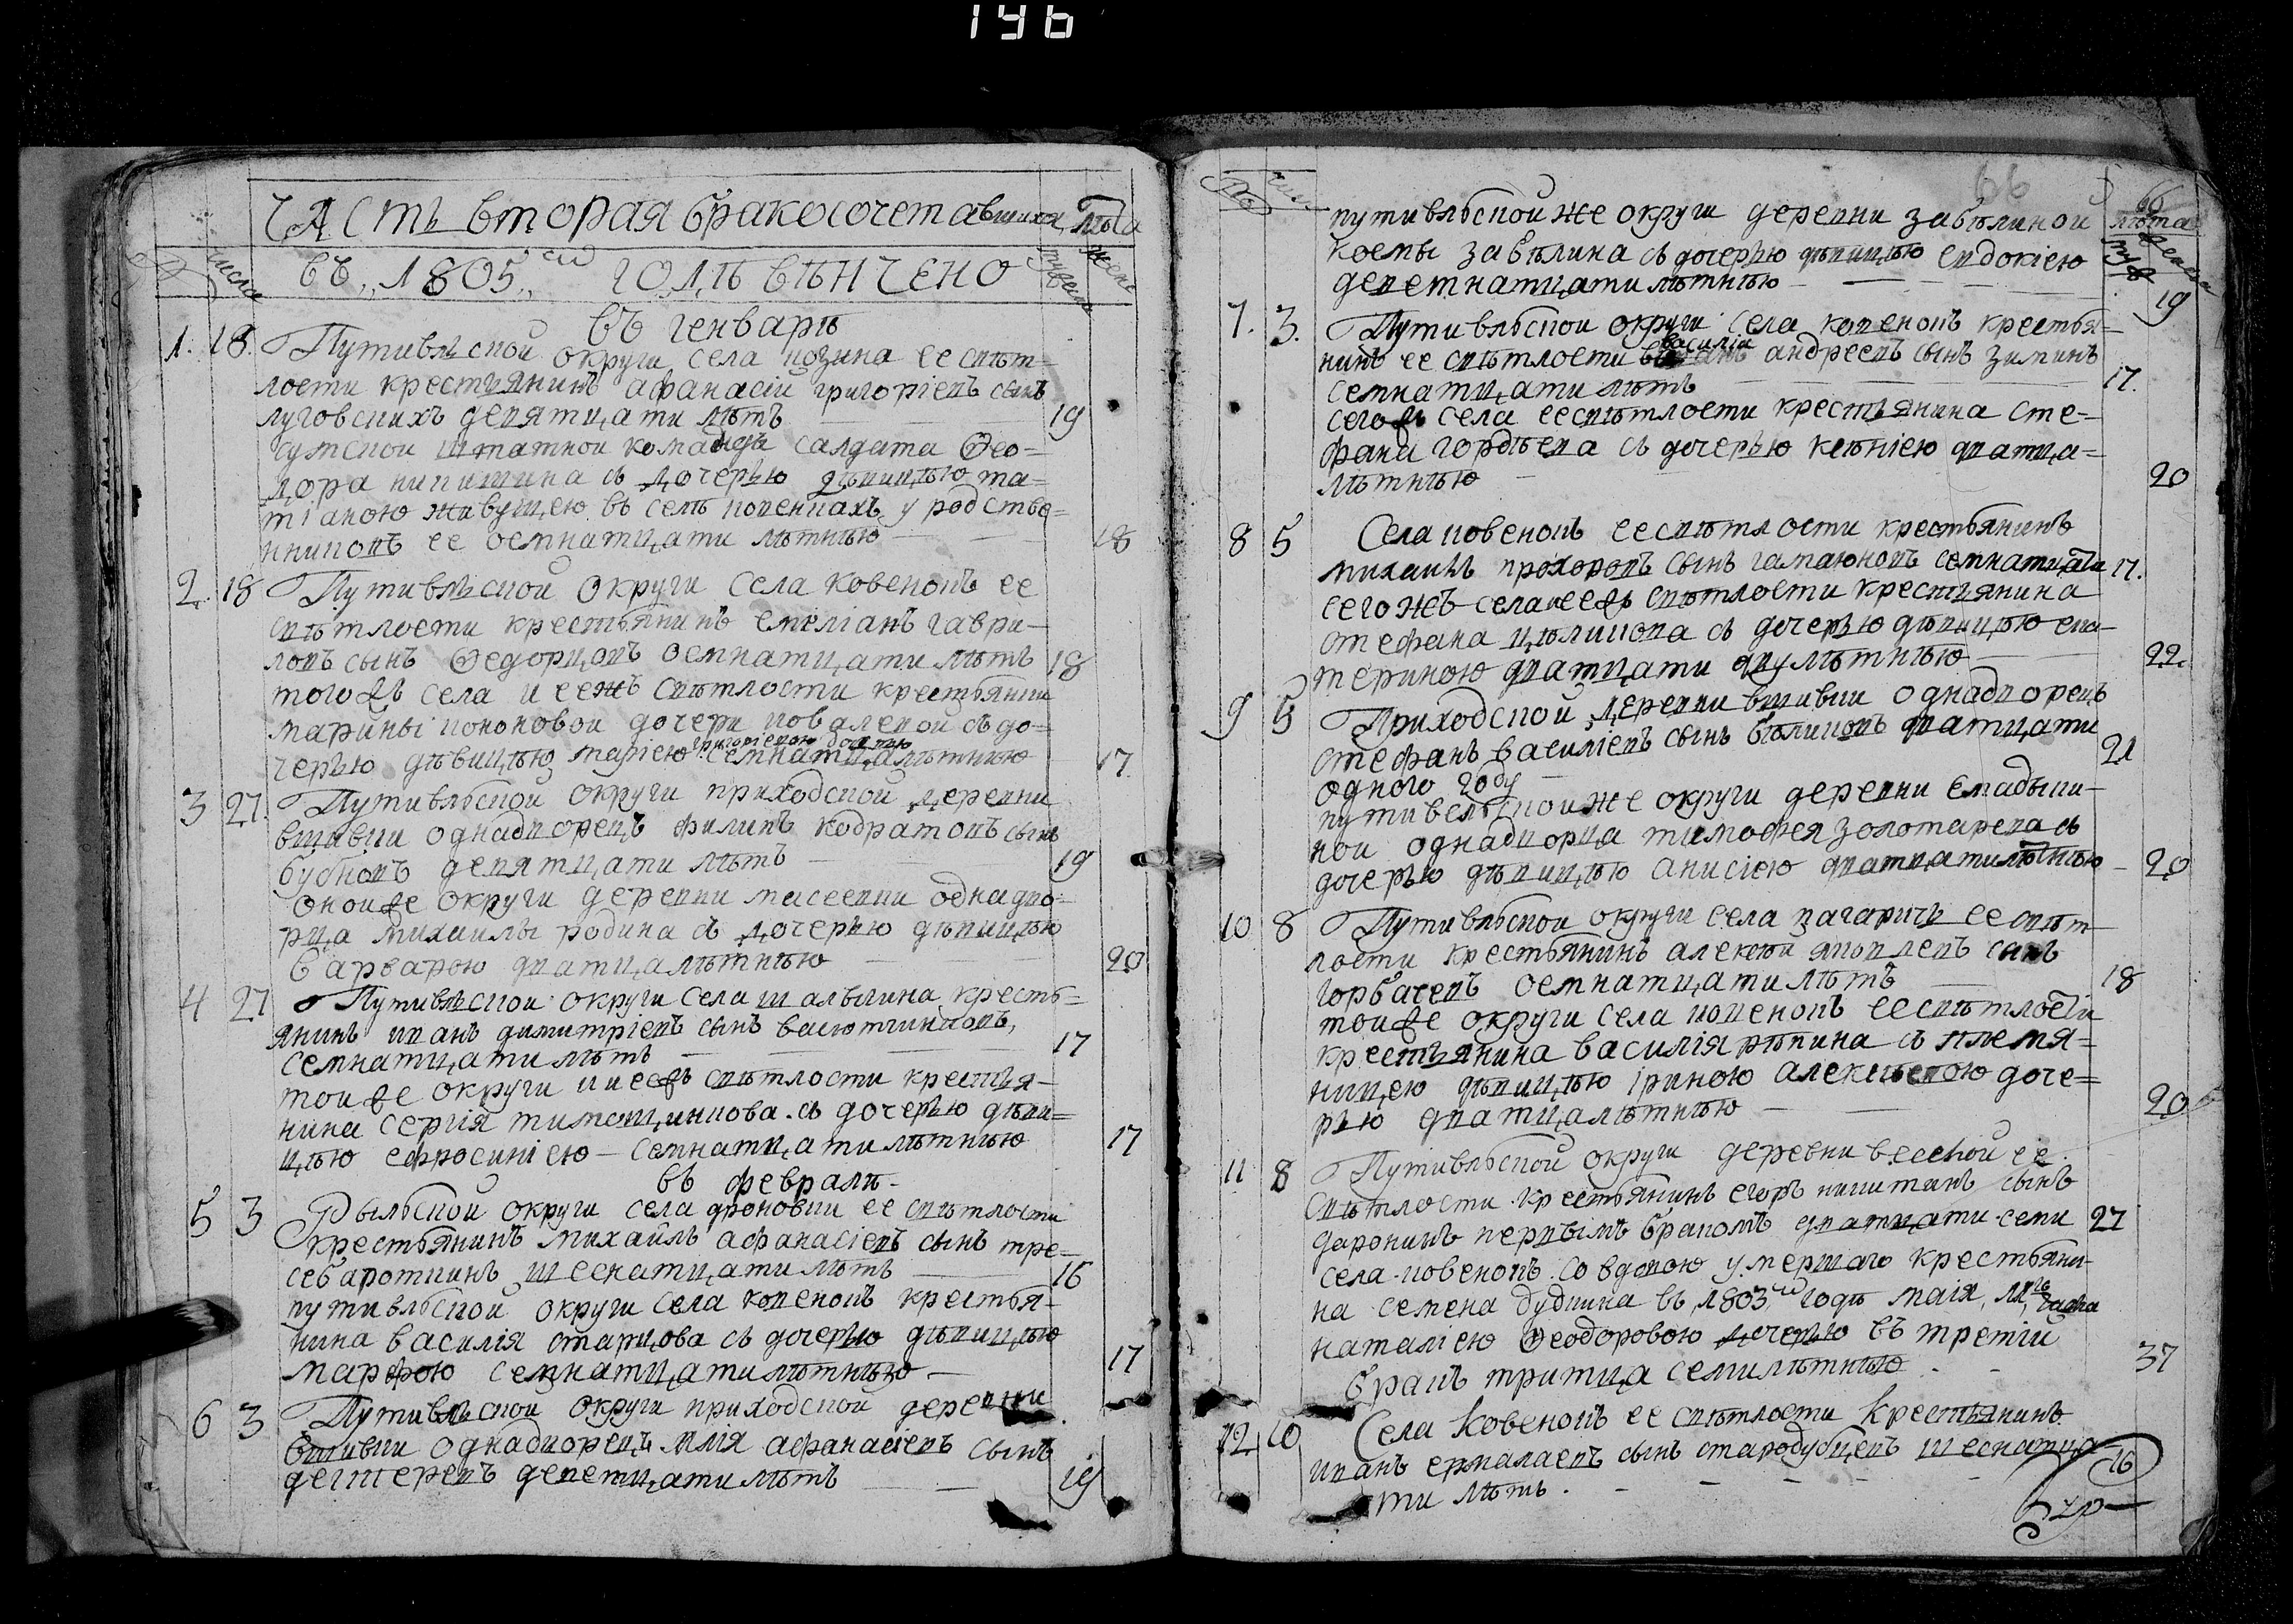 196
Часть вторая бракосочетавшихся
лѣта
№
числа
въ 1805м годѣ вѣнчено
мужеск
женс
въ генварѣ
1. 18. Путивльской округи села козина ее свѣт-
лости крестьянинъ афанасіи григоріевъ сынъ
луговскихъ девятцати лѣтъ 19
сумской штатной команды салдата Ѳео=
дора никитина съ дочерью дѣвицѣю та=
тіаною живущею въ селѣ ковенкахъ у родстве=
нниковъ ее осмнатцати лѣтнѣю 18
2. 18 Путивльской округи села ковенокъ ее
свѣтлости крестьянинъ емеліанъ гаври-
ловъ сынъ Ѳедорцовъ осмнатцати лѣтъ 18
тогожъ села и еежъ свѣтлости крестьянки
марины кононовой дочери ковалевой съ до=
черью дѣвицѣю маріею григоріевою дочерью семнатцалѣтнѣю 17.
3 27. Путивльской округи приходской деревни
вшивки однадворецъ филипъ кодратовъ сынъ
бубновъ девятцати лѣтъ 19
оной же округи деревни масеевки однадво=
рца михаилы родина съ дочерью дѣвицѣю
варварою дватцалѣтнѣю 20
4 27 Путивльской округи села шалыгина кресть=
янинъ иванъ димитріевъ сынъ васютчинковъ,
семнатцати лѣтъ 17
той же округи и еежъ свѣтлости крестья-
нина сергія тимощинкова съ дочерью дѣви=
цѣю ефросиніею - семнатцати лѣтнѣю 17
въ февралѣ -
5 3 Рыльской округи села дроновки ее свѣтлости
крестьянинъ михаилъ афанасіевъ сынъ тре=
себаротчинъ шеснатцати лѣтъ 16
путивльской округи села ковенокъ крестья-
нина василія статцова съ дочерью дѣвицѣю
марфою семнатцатилѣтнѣю - 17
6 3 Путивльской округи приходской деревни
вшивки однадворецъ илія афанасіевъ сынъ
дегтеревъ деветцати лѣтъ 19
66
№
числ
66
лѣта
муж
женска
путивльской же округи деревни забѣлиной
космы забѣлина съ дочерью дѣвицѣю евдокіею
деветнатцати лѣтнѣю - 19
7. 3. Путивльской округи села ковенокъ крестья=
нинъ ее свѣтлости василіи андреевъ сынъ зиминъ
семнатцати лѣтъ 17.
сегожъ села ее свѣтлости крестьянина сте=
фана гордѣева съ дочерью ксѣніею дватца=
лѣтнѣю 20
8 5 Села ковенокъ ее свѣтлости крестьянинъ
михаилъ прохоровъ сынъ гамаюновъ семнатцати 17.
сегожъ села и ееже свѣтлости крестьянина
стефана цѣликова съ дочерью дѣвицѣю ека-
териною дватцати двулѣтнѣю 22
9 5 Приходской деревни вшивки однадворецъ
стефанъ василіевъ сынъ бѣликовъ дватцати
одного году 21
путивельской же округи деревни
ной однадворца тимофея золотарева съ
дочерью дѣвицѣю анисіею дватцатилѣтнѣю - 20
10 8 Путивльской округи села вагаричъ ее свѣт-
лости крестьянинъ алексѣй яковлевъ сынъ
горбачевъ осмнатцати лѣтъ 18
той же округи села ковенокъ ее свѣтлости
крестьянина василія рѣпина съ племя=
ницею дѣвицѣю іриною алексѣевою доче=
рью дватцалѣтнѣю - 20
11 8 Путивльской округи деревни весской ее
свѣтлости крестьянинъ егоръ никитанъ сынъ
даронинъ первымъ бракомъ дватцати семи 27
села ковенокъ со вдовою умершаго крестьяни-
на семена дудкина въ 1803м годѣ маія,
наталіею Ѳеодоровою дочерью въ третій
бракъ тритца семилѣтнѣю 37
12 10 Села ковенокъ ее свѣтлости крестьянинъ
иванъ ермалаевъ сынъ стародубцевъ шеснатца
ти лѣтъ. 16